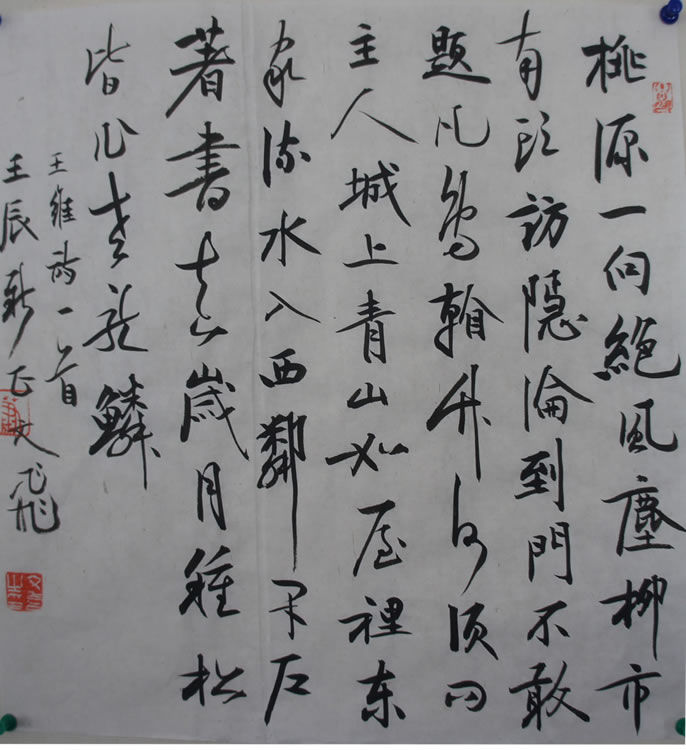 桃源一向絕風塵柳市
南頭訪隱淪到門不敢
題凡鳥翰竹何須問
主人城上青山如屋裡東
家流水入西鄰閉戶
著書多歲月種松
皆作老龍鱗
王維詩一首
壬辰新正文飛